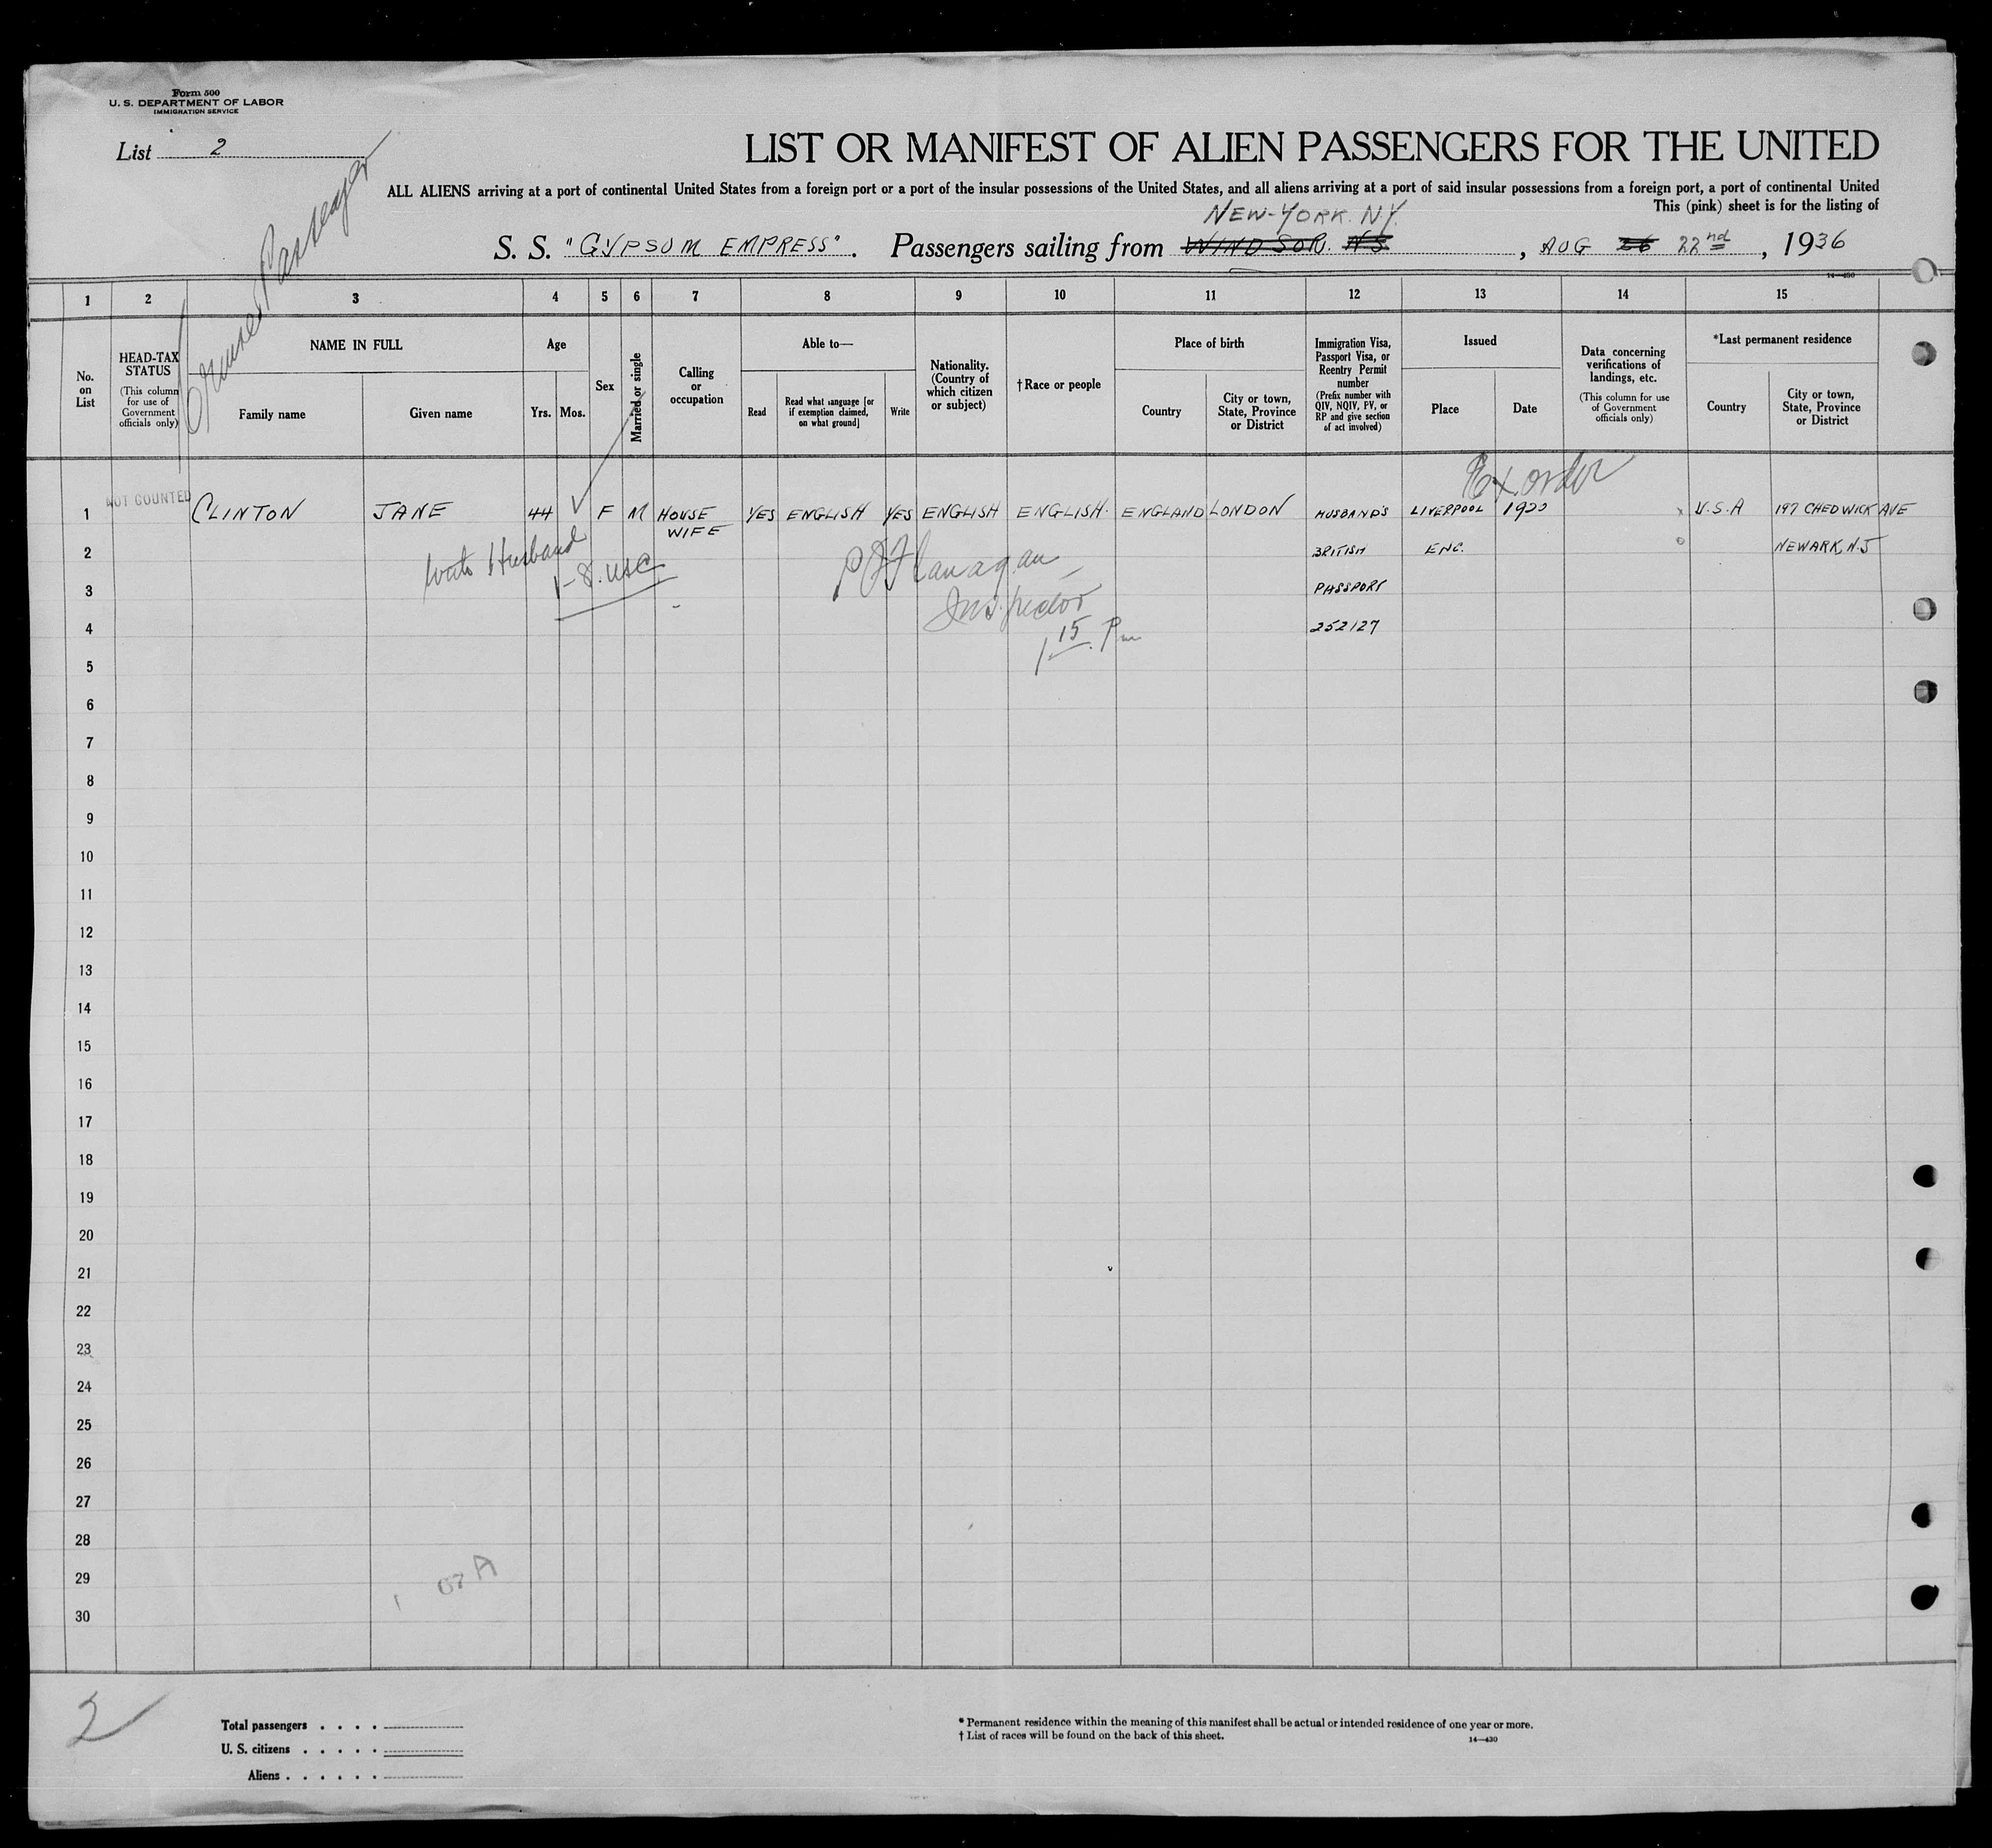 Form 500
U. S. DEPARTMENT OF LABOR
IMMIGRATION SERVICE
List 2
Cruise Passenger
LIST OR MANIFEST OF ALIEN PASSENGERS FOR THE UNITED
ALL ALIENS arriving at a port of continental United States from a foreign port or a port of the insular possessions of the United States, and all aliens arriving at a port of said insular possessions from a foreign port, a port of continental United
This (pink) sheet is for the listing of
NEW-YORK. N.Y.
S. S. "GYPSUM EMPRESS". Passengers sailing from WINDSOR. NS, AUG 26 22nd, 1936
14—430
1 2 3 4 5 6 7 8 9 10 11 12 13 14 15
No. on List
HEAD-TAX STATUS
(This column for use of Government officials only)
NAME IN FULL
Family name
Given name
Age
Yrs.
Mos.
Sex
Married or single
Calling or occupation
Able to—
Read
Read what language [or if exemption claimed, on what ground]
Write
Nationality. (Country of which citizen or subject)
†Race or people
Place of birth
Country
City or town, State, Province or District
Immigration Visa, Passport Visa, or Reentry Permit number
(Prefix number with QIV, NQIV, PV, or RP and give section of act involved)
Issued
Place
Date
Data concerning verifications of landings, etc.
(This column for use of Government officials only)
*Last permanent residence
Country
City or town, State, Province or District
Ex. order
1 NOT COUNTED CLINTON JANE 44 F M HOUSE WIFE YES ENGLISH YES ENGLISH ENGLISH. ENGLAND LONDON HUSBAND'S LIVERPOOL U.S.A 197 CHEDWICK AVE
2 BRITISH ENG. NEWARK, N.J
3 PASSPORT
4 252127
Husband
P J Flanagan
Inspector
1 15 Pm
5
6
7
8
9
10
11
12
13
14
15
16
17
18
19
20
21
22
23
24
25
26
27
28
29
30
2
Total passengers
U. S. citizens
Aliens
* Permanent residence within the meaning of this manifest shall be actual or intended residence of one year or more.
† List of races will be found on the back of this sheet.
14—430